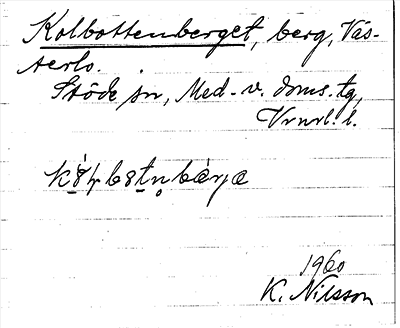 Kolbottenberget, berg, Väs-
terlo.
Stöde sn, Med-v. doms.tg,
Vrnrl. l.
1960
K. Nilsson